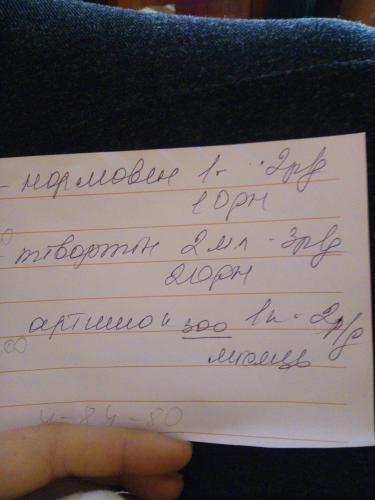 - нормовен 1т · 2р/д
10дн
- тівортін 2мл - 3р/д
20дн
артишок 300 1к · 2р/д
місяць
4-84-80